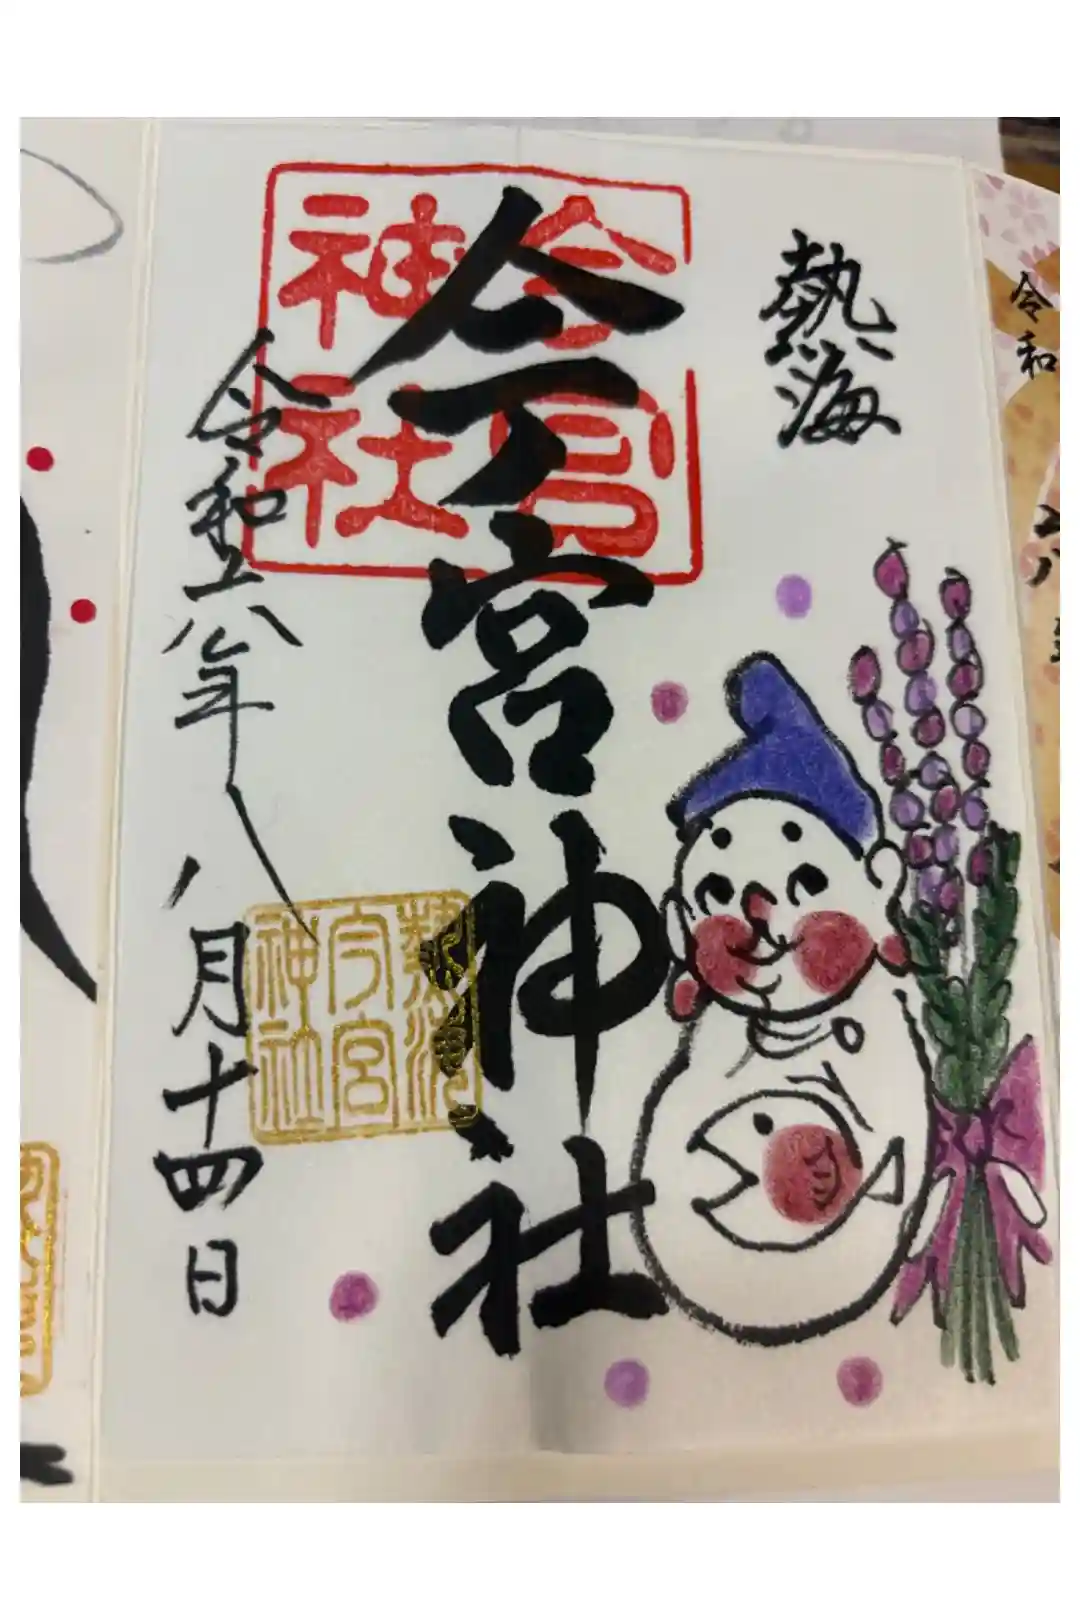 熱海
今宮神社
令和六年八月十四日
今宮
神社
熱海
今宮
神社
令和
六